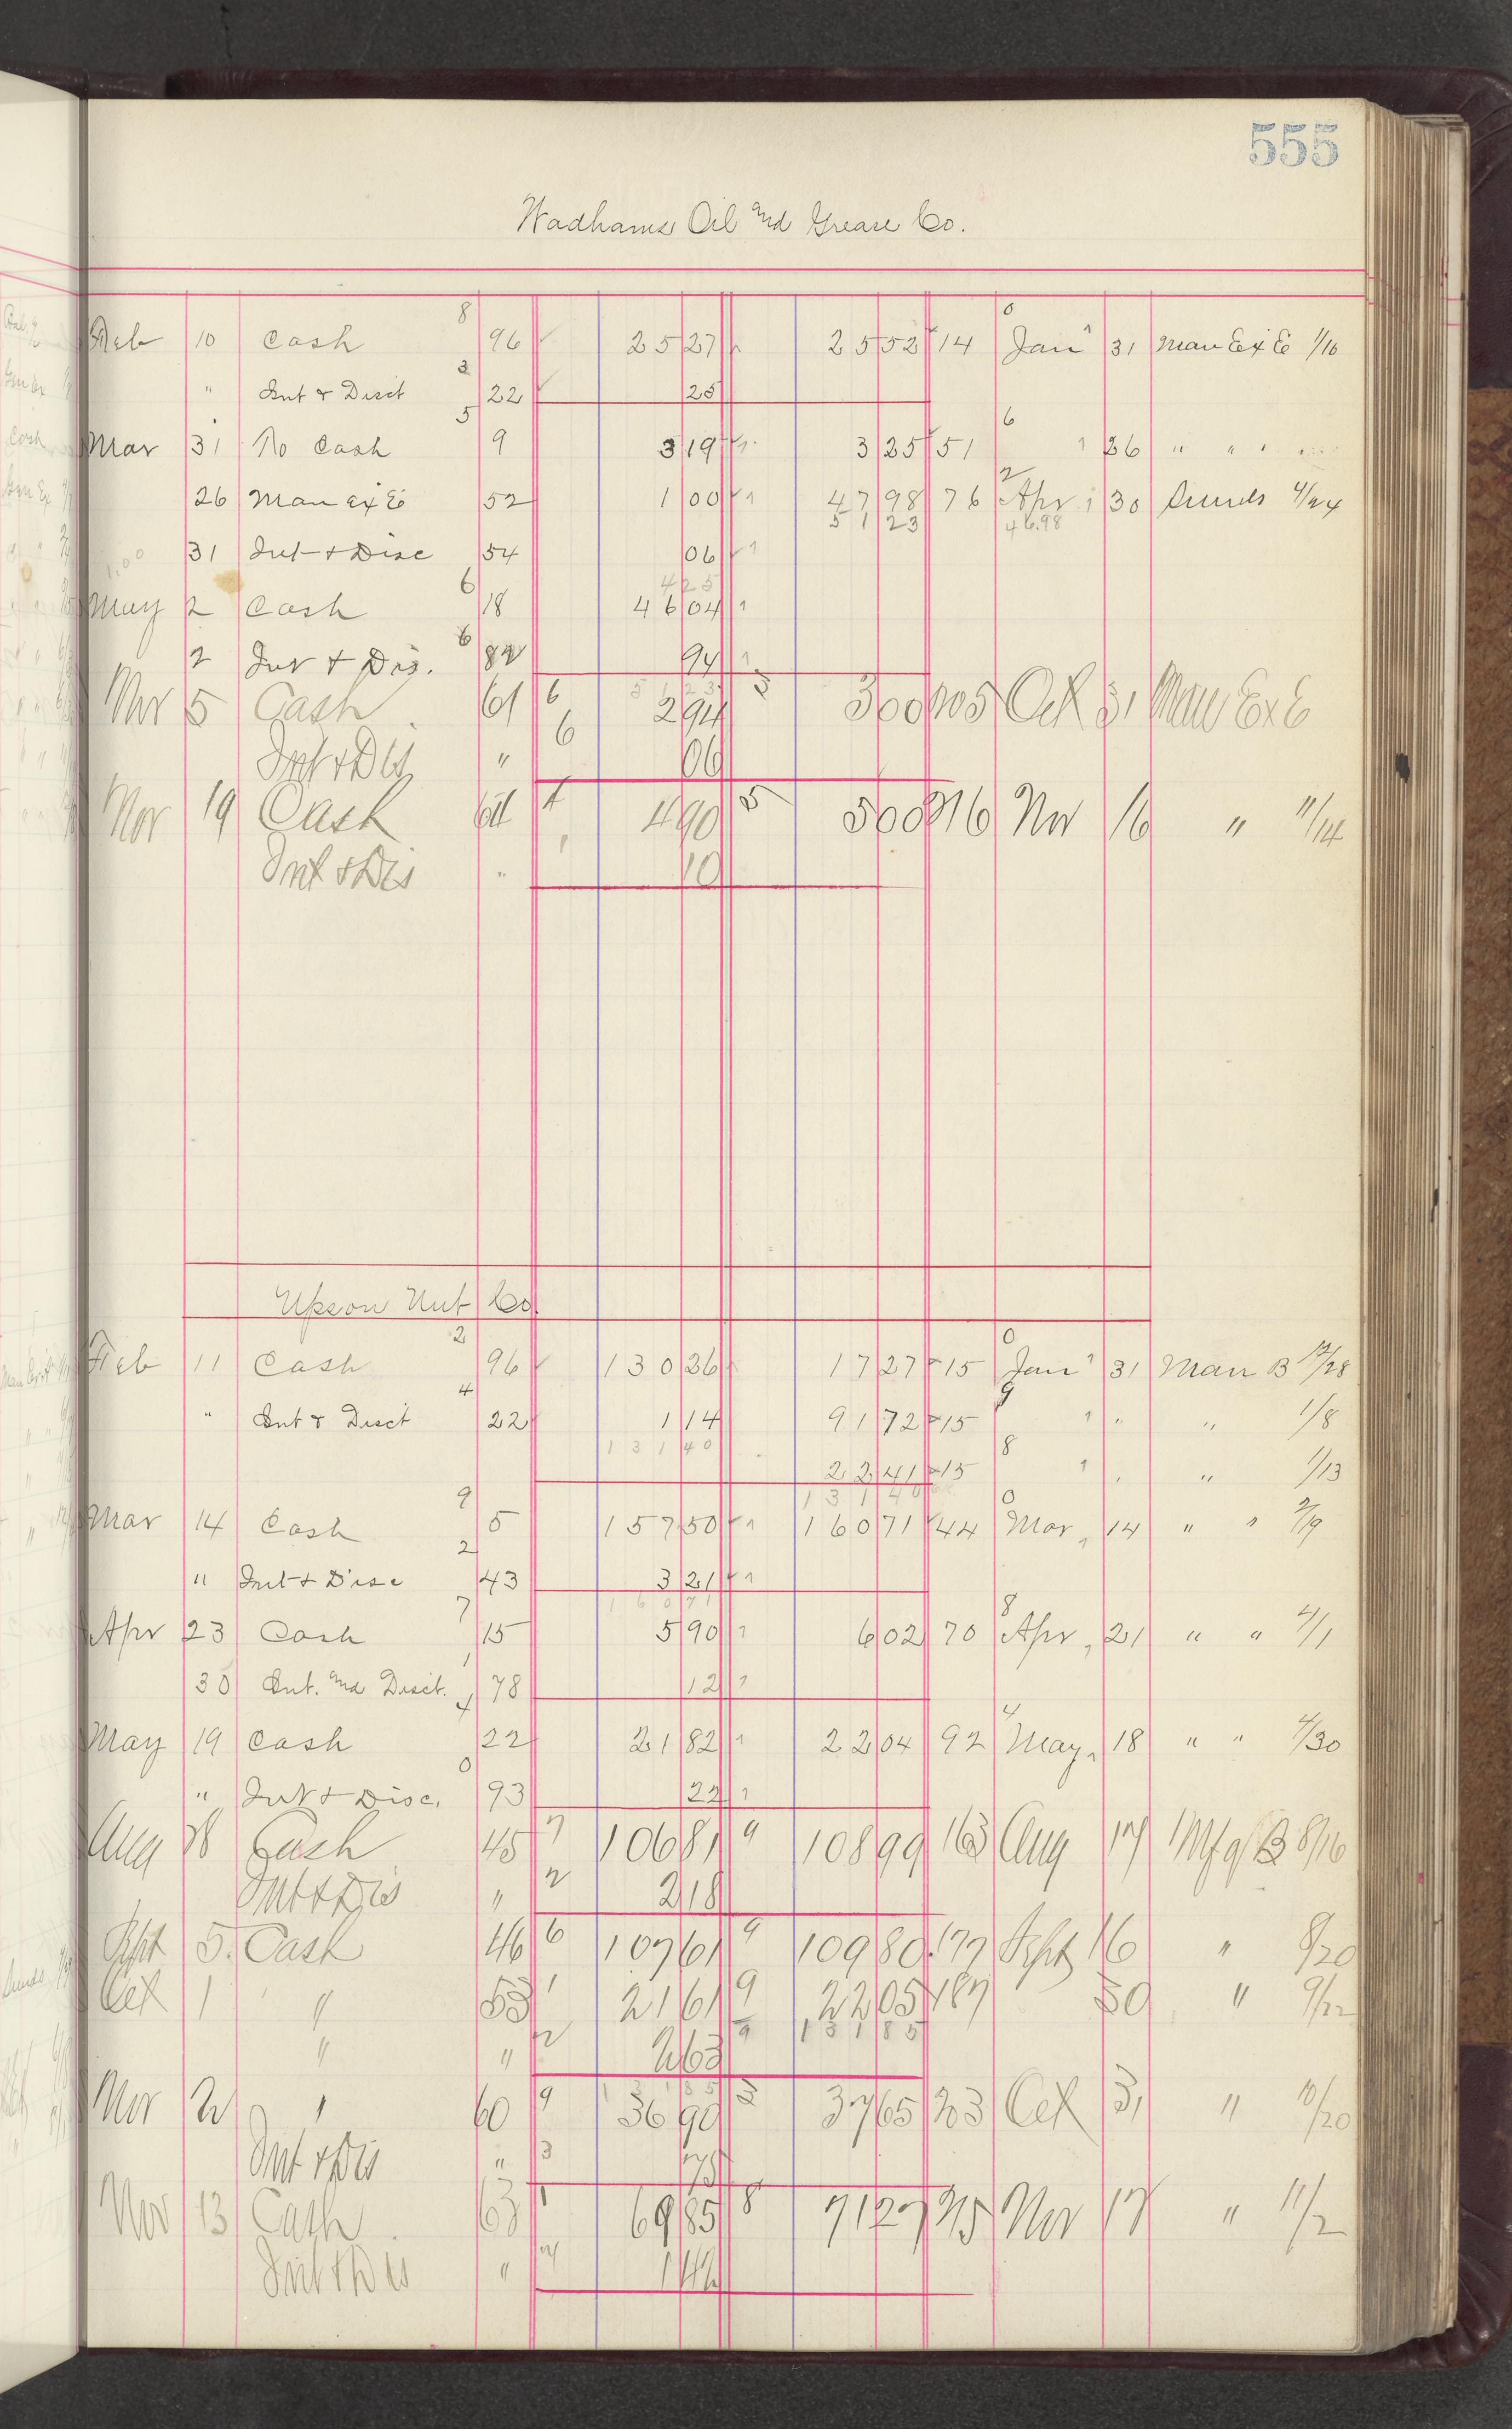 555
Wadhams Oil and Grease Co.
8 0
Feb 10 Cash 96 25 27 25 52 14 Jan 31 Man Ex E 1/10
3
" Int & Disct 22 25
5 6
Mar 31 No Cash 9 3 19 3 25 51 26 " " "
2
26 Man Ex E 52 1 00 47 98 76 Apr 30 Sunds 4/24
51 23 46.98
31 Int & Disc 54 06
6 4 25
May 2 Cash 18 46 04
6
2 Int & Dis. 82 94
51 23
Nov 5 Cash 61 6 2 94 3 3 00 205 Oct 31 Man Ex E
Int & Dis " 6 06
Nov 19 Cash 64 1 4 90 5 5 00 216 Nov 16 " 11/14
Int & Dis " 1 10
Upson Nut Co.
2 0
Feb 11 Cash 96 130 26 17 27 15 Jan 31 Man B 12/28
4 9
" Int & Disct 22 1 14 91 72 15 " " 1/8
131 40 8
22 41 15 " 1/13
9 131 40 0
Mar 14 Cash 5 157 50 160 71 44 Mar 14 " " 2/9
2
" Int & Disc 43 3 21
7 160 71 8
Apr 23 Cash 15 5 90 6 02 70 Apr 21 " " 4/1
1
30 Int. and Disct. 78 12
4 4
May 19 Cash 22 21 82 22 04 92 May 18 " " 4/30
0
" Int & Disc. 93 22
Aug 28 Cash 45 7 106 81 9 108 99 163 Aug 17 Mfg B 8/16
Int & Dis " 2 2 18
Sept 5 Cash 46 6 107 61 9 109 80 177 Sept 16 " 8/20
Oct 1 " 53 1 21 61 9 22 05 187 30 " 9/22
9 131 85
" " 2 2 63
131 85
Nov 2 " 60 9 36 90 3 37 65 203 Oct 31 " 10/20
Int & Dis " 3 75
Nov 13 Cash 63 1 69 85 8 71 27 215 Nov 17 " 11/2
Int & Dis " 4 1 42